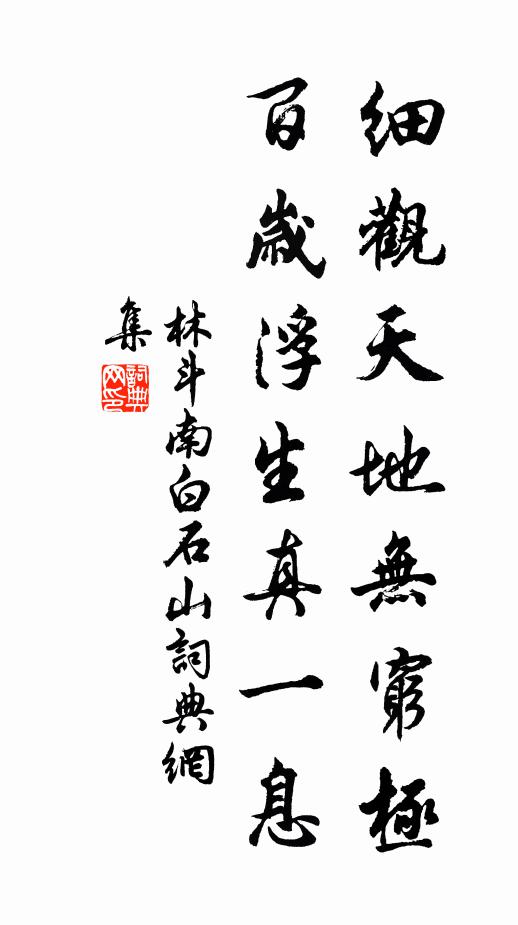 細觀天地無窮極
百歲浮生真一息
林斗南白石山詞典網
集
詞典網印